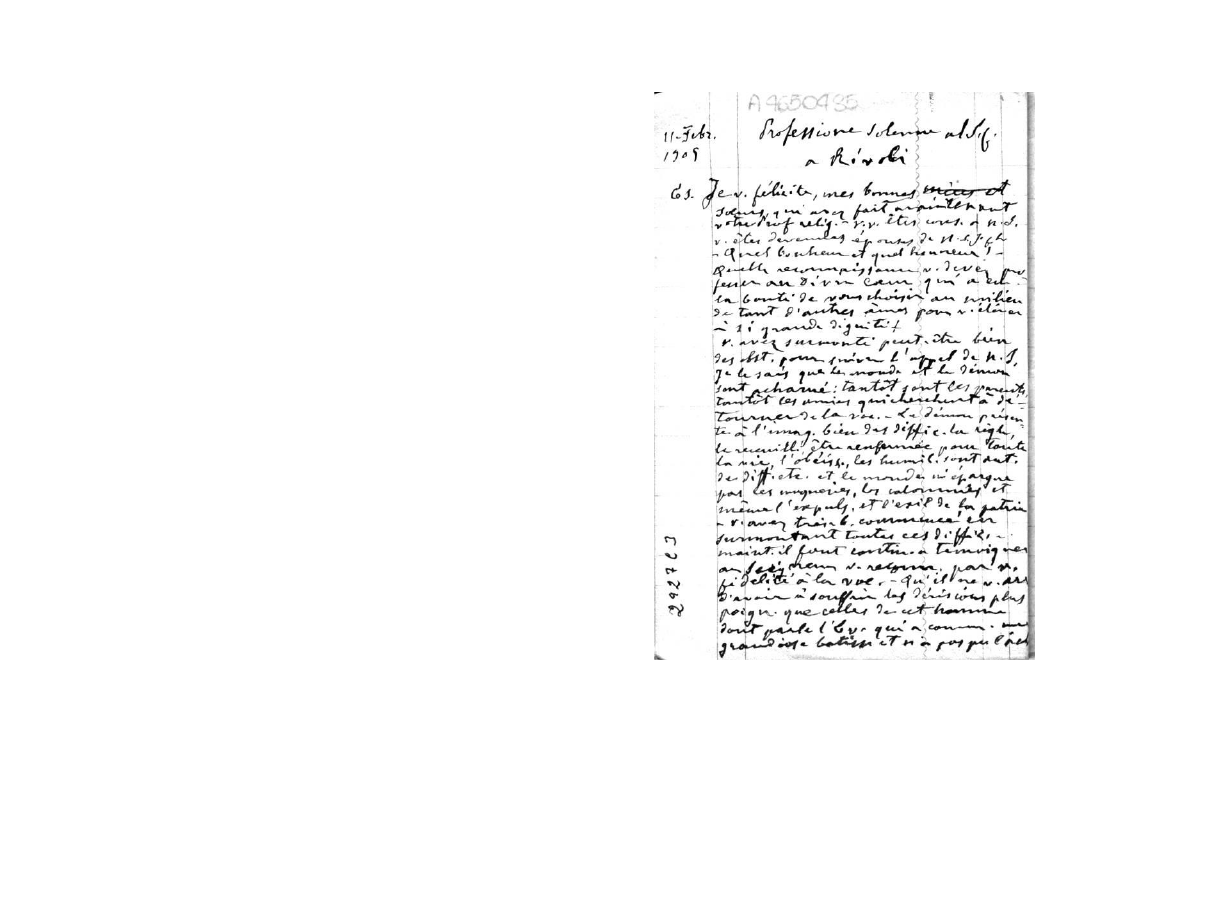 A4650495
11-Febr. Professione Solenne al S.C.
1909 a Rivoli
Es. Je v. félicite, mes bonnes mères et
soeurs, qui avez fait maintenant
votre prof relig. - v.v. êtes cons. a N.S.
v. êtes devenues épouses de N.S.J.Ch
- Quel bonheur et quel honneur! -
Quelle reconnaissance v. devez pro
fesser au Divin Coeur qui a eu
la bonté de vous choisir au milieu
de tant d'autres âmes pour v. élever
à si grande dignité!
V. avez surmonté peut-être bien
des obst. pour suivre l'appel de N.S.
Je le sais que le monde et le démon
sont acharné: tantôt sont les parents,
tantôt les amies qui cherchent à dé-
tourner de la voc. - Le démon présen
te à l'imag. bien des diffic. la règle,
le recueill. être renfermée pour toute
la vie, l'obéiss., les humil. sont aut.
de diffctés. et le monde n'épargne
pas les moqueries, les calomnies et
même l'expuls. et l'exil de la patrie
- V. avez très b. commencé en
surmontant toutes ces diffic. -
maint. il faut contin. a témoigner
au Seigneur v. reconn. par v.
fidélité à la voc. - Qu'il ne v. arr
d'avoir à souffrir les dérisions plus
poign. que celles de cet homme
dont parle l'Ev. qui a comm. une
grandiose batisse et n'a pas pu l'ach
2927C3